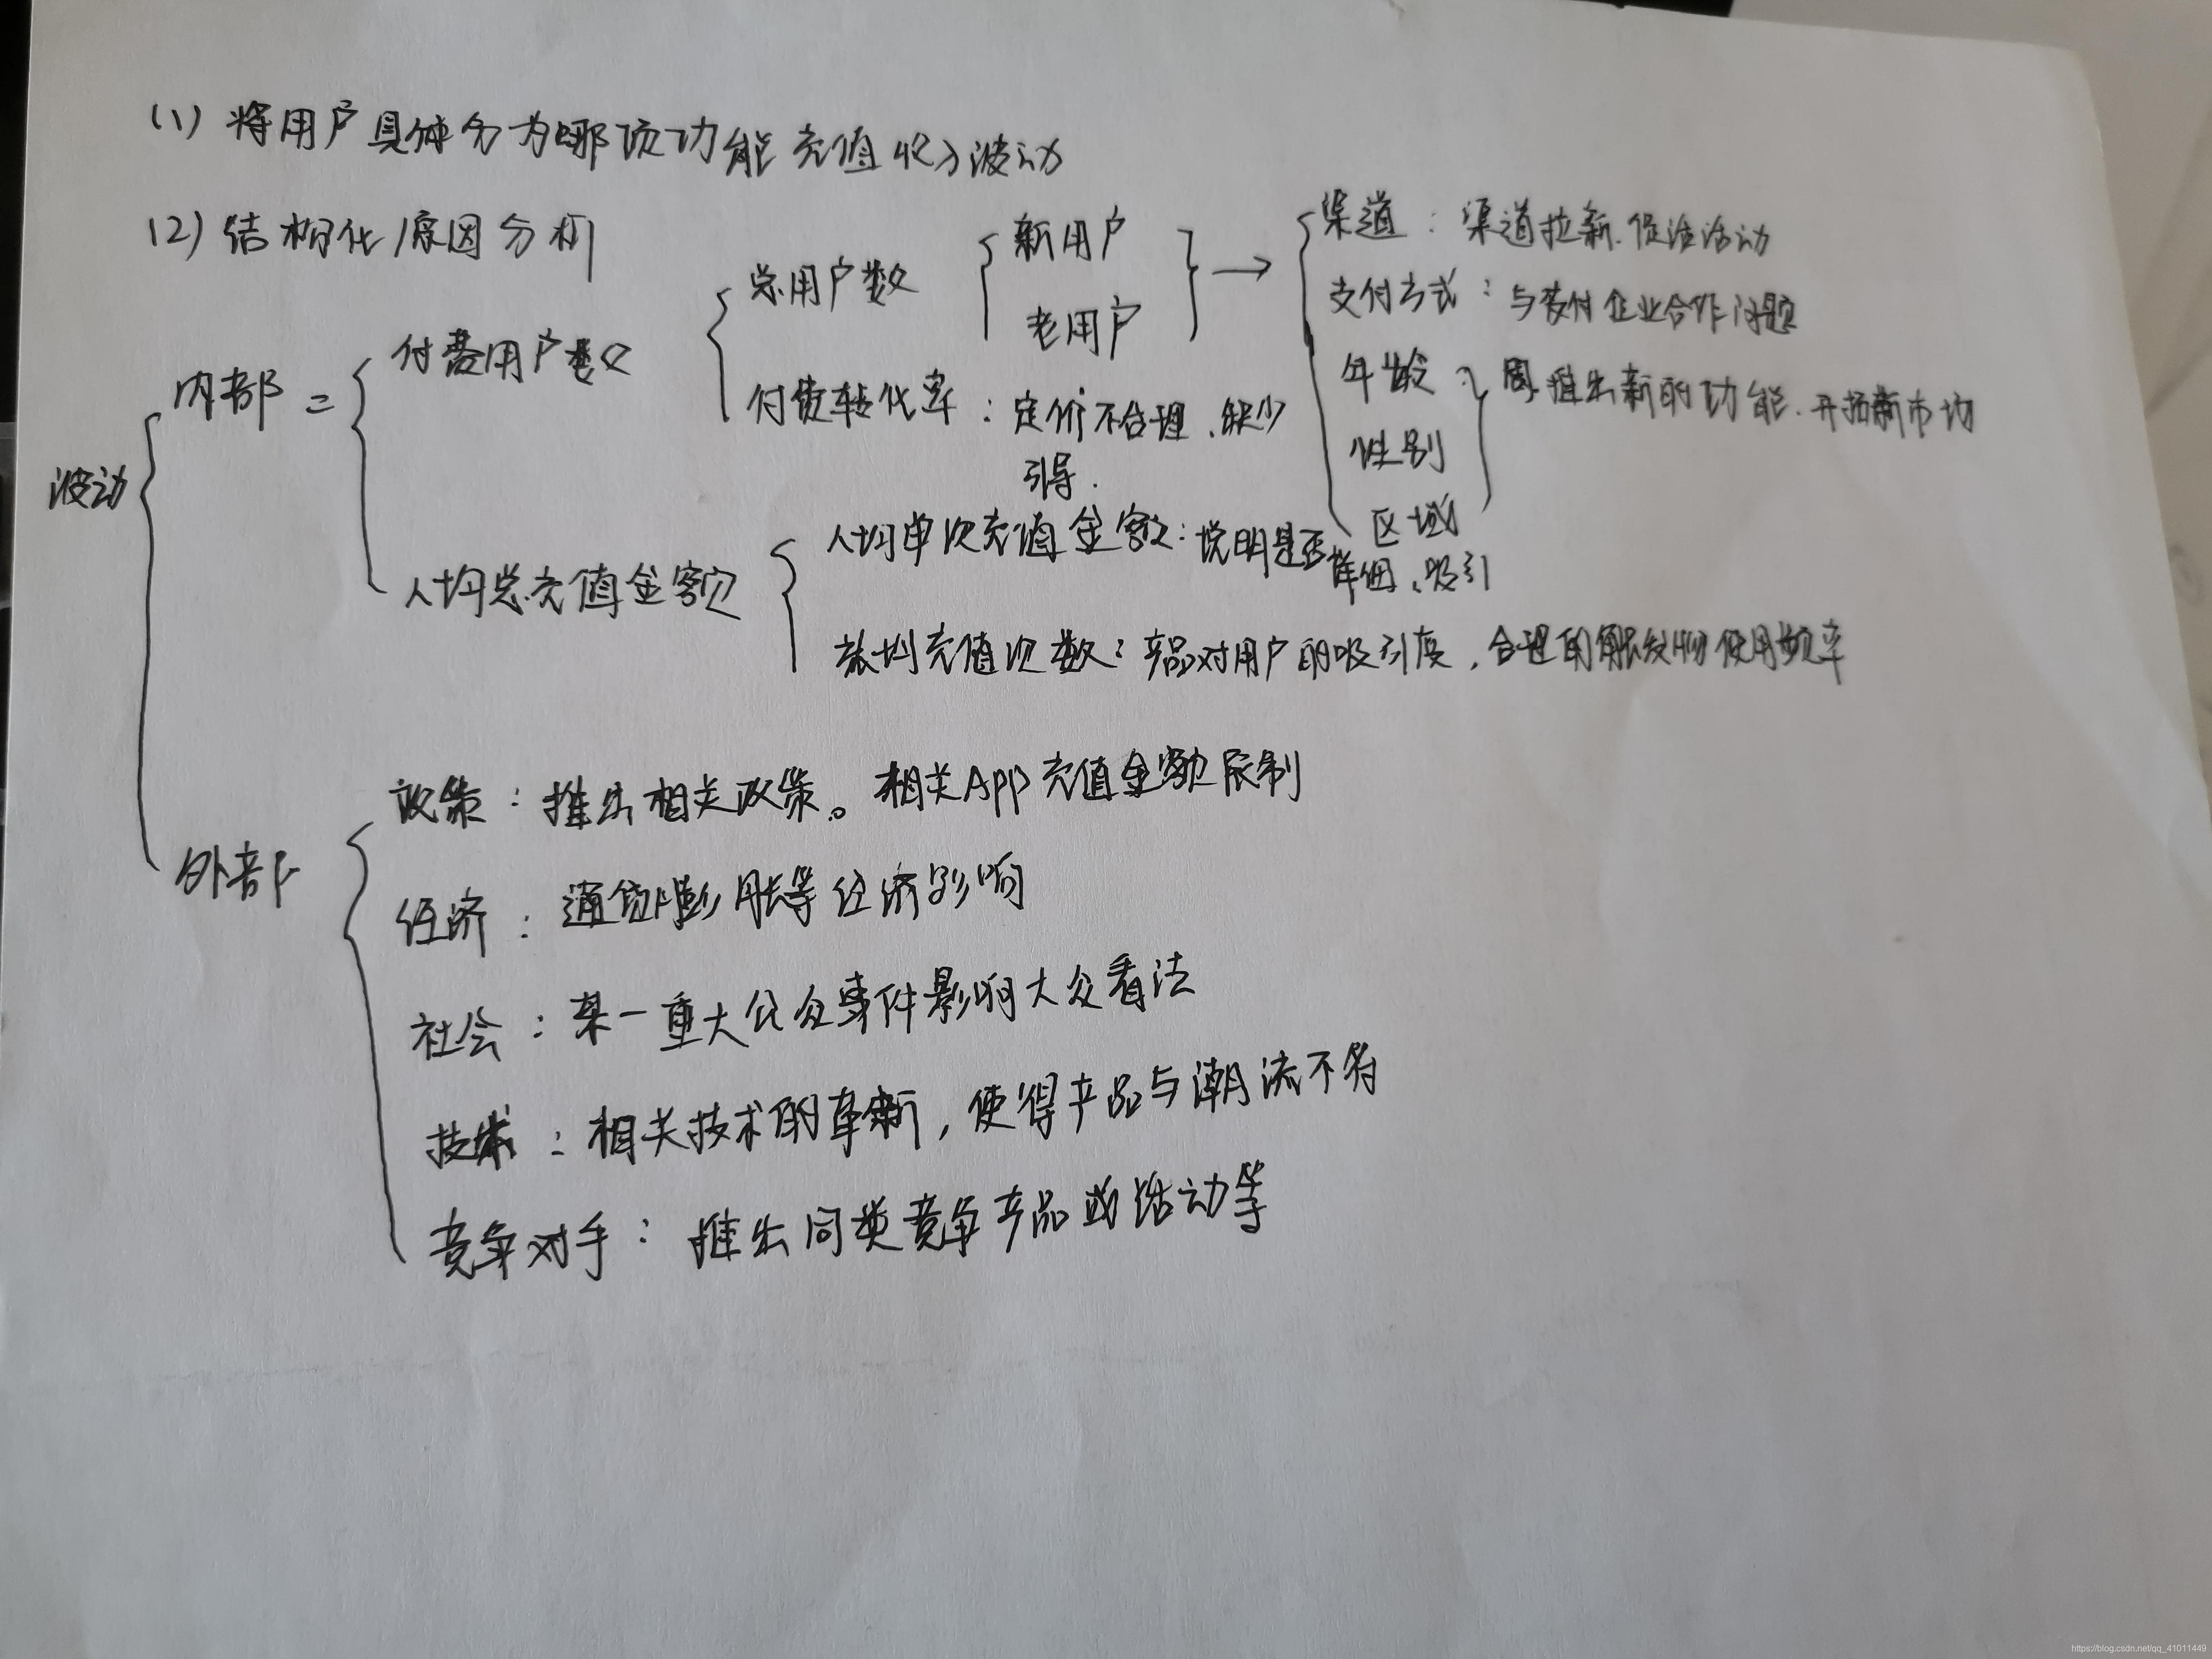 (1) 将用户具体分为哪项功能充值收入波动
(2) 结构化原因分析
波动
内部 =
付费用户数
总用户数
新用户
老用户
渠道：渠道拉新、促活活动
支付方式：与支付企业合作问题
年龄
性别
区域
推出新的功能、开拓新市场
付费转化率：定价不合理、缺少
引导.
人均总充值金额
人均单次充值金额：说明是否详细、吸引
充值次数：产品对用户的吸引度，合理的触发物 使用频率
外部
政策：推出相关政策。相关APP充值金额限制
经济：通货膨胀等经济影响
社会：某一重大公众事件影响大众看法
技术：相关技术的革新，使得产品与潮流不符
竞争对手：推出同类竞争产品或活动等
https://blog.csdn.net/qq_41011449